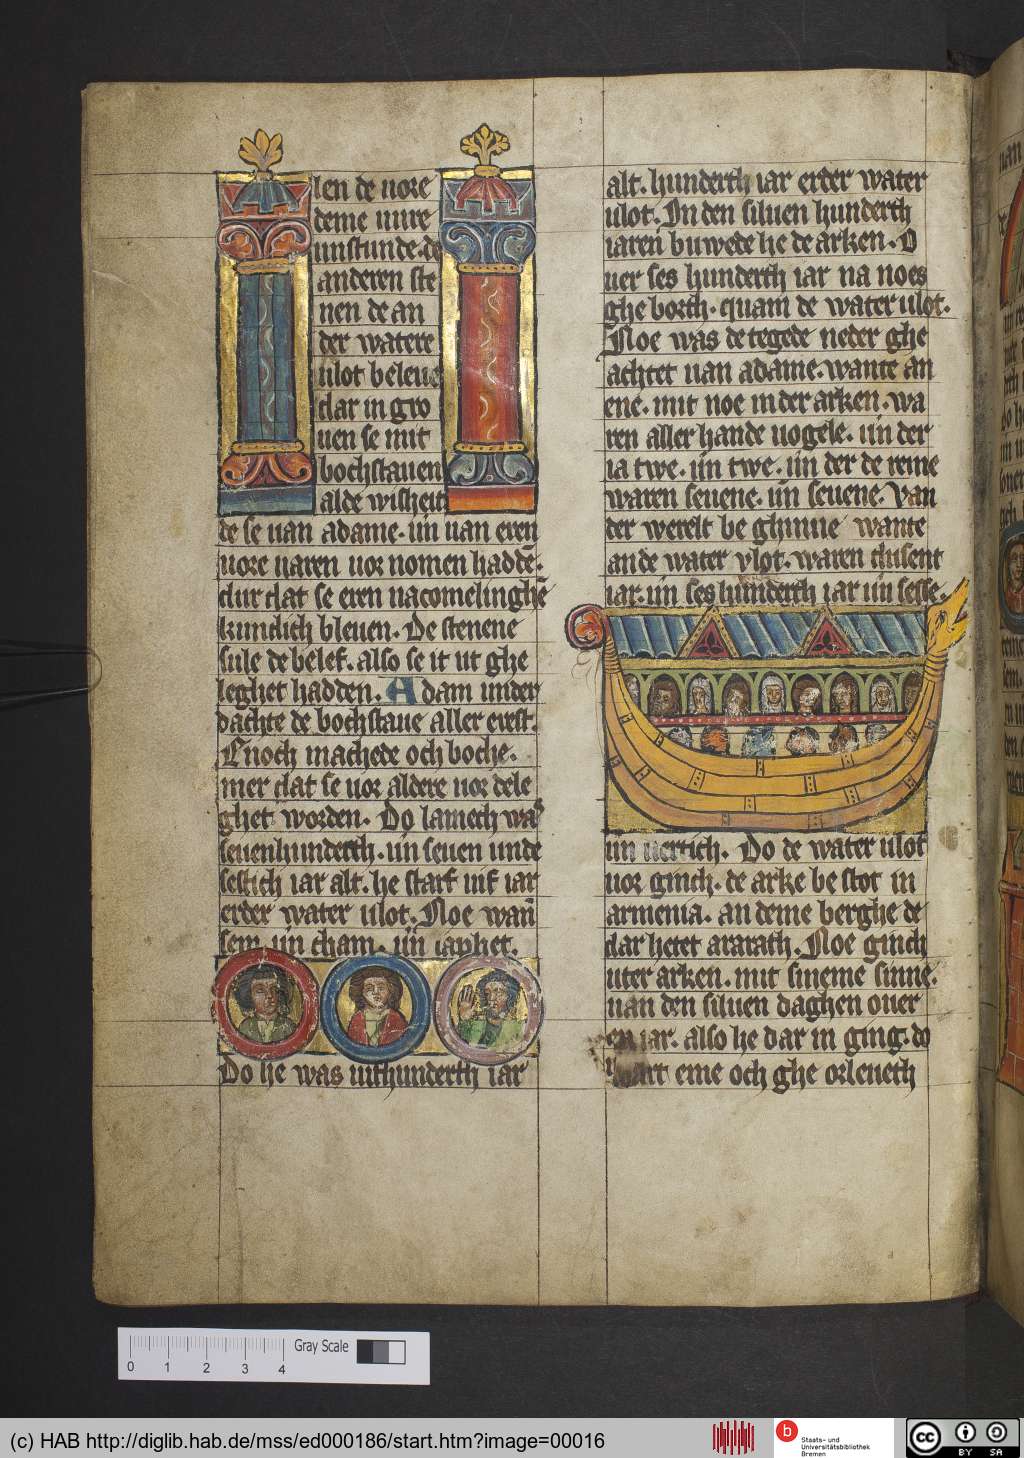 len de vore
deme vure
unstunde. de
anderen ste
nen de an
der watere
vlot beleve
dar in gro
ven se mit
bochstauen
alde wisheit
de se uan adame. un̄ uan eren
vore uaren uor nomen hadde.
dur dat se eren nacomelinghē
kundich bleuen. De stenene
sule de belef. also se it ut ghe
leghet hadden. Adam under
dachte de bochstaue aller erest.
Enoch machede och boche.
mer dat se uor aldere uor dele
ghet worden. Do lamech was
seuenhunderth. un̄ seuen unde
sestich iar alt. he starf vif iar
erder water vlot. Noe wan̄
sem. un̄ cham. un̄ iaphet.
Do he was vifhunderth iar
alt. hunderth iar erder water
vlot. In den siluen hunderth
iaren buwede he de arken. O
uer ses hunderth iar na noes
ghe borth. quam de water vlot.
Noe was de tegede neder ghe
achtet uan adame. wante an
ene. mit noe in der arken. wa
ren aller hande uogele. un̄ der
ia twe. un̄ twe. un̄ der de reine
waren seuene. un̄ seuene. Van
der werelt be ghinne wante
an de water vlot. waren dusent
iar. un̄ ses hunderth iar un̄ sesse.
un̄ uertich. Do de water vlot
uor ginch. de arke be stot in
armenia. an deme berghe de
dar hetet ararath. Noe ginch
uter arken. mit sineme sinne.
uan den siluen daghen ouer
en iar. also he dar in ging. do
wart eme och ghe orleueth
0 1 2 3 4
Gray Scale
(c) HAB http://diglib.hab.de/mss/ed000186/start.htm?image=00016
b
Staats- und
Universitätsbibliothek
Bremen
cc
BY SA